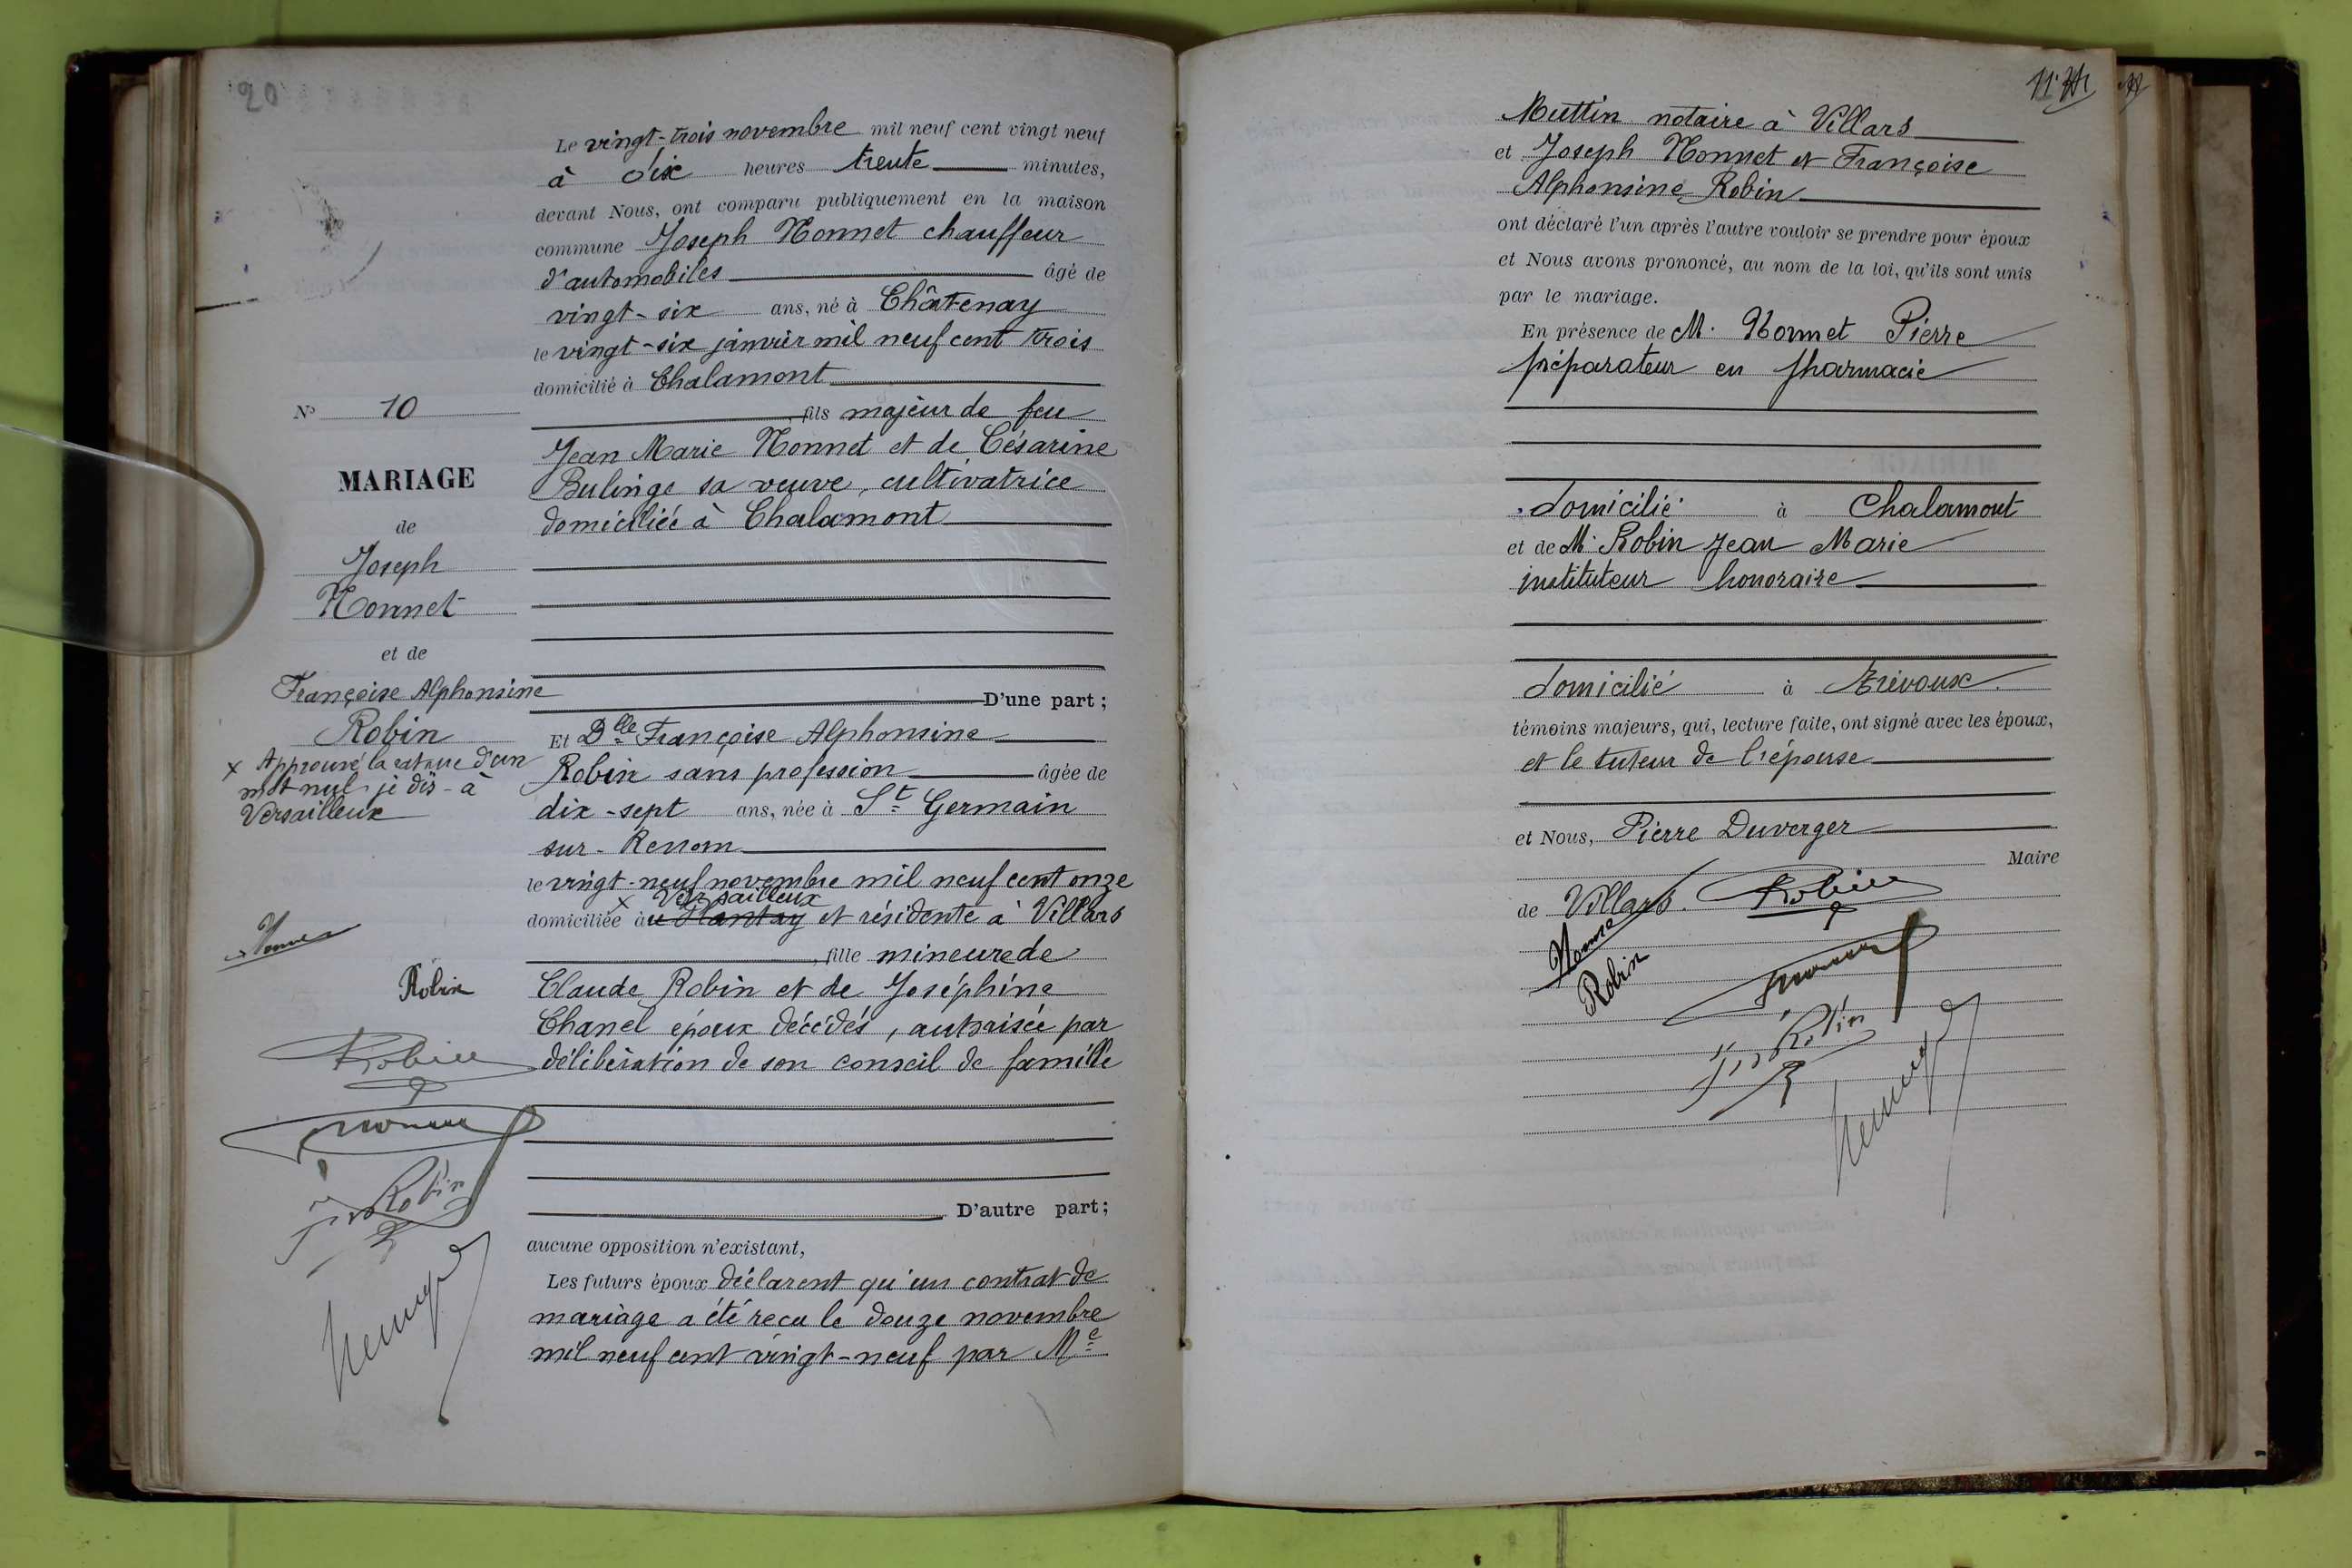 20
Le vingt-trois novembre mil neuf cent vingt neuf
à dix heures trente minutes,
devant Nous, ont comparu publiquement en la maison
commune Joseph Nonnet chauffeur
d'automobiles âgé de
vingt-six ans, né à Châtenay
le vingt-six janvier mil neuf cent trois
domicilié à Chalamont
, fils majeur de feu
Jean Marie Nonnet et de Césarine
Bulinge sa veuve, cultivatrice
domiciliée à Chalamont
D'une part ;
Et Dlle Françoise Alphonsine
Robin sans profession âgée de
dix-sept ans, née à St Germain
sur-Renom
le vingt-neuf novembre mil neuf cent onze
x Versailleux
domiciliée àu Plantay et résidente à Villars
, fille mineure de
Claude Robin et de Joséphine
Chanel époux décédés, autorisée par
délibération de son conseil de famille
D'autre part ;
aucune opposition n'existant,
Les futurs époux déclarent qu'un contrat de
mariage a été reçu le douze novembre
mil neuf cent vingt-neuf par Me
N° 10
MARIAGE
de
Joseph
Nonnet
et de
Françoise Alphonsine
Robin
x Approuvé la rature d'un
mot nul je dis - à
Versailleux
Robin
Robin
Robin
Muttin notaire à Villars
et Joseph Nonnet et Françoise
Alphonsine Robin
ont déclaré l'un après l'autre vouloir se prendre pour époux
et Nous avons prononcé, au nom de la loi, qu'ils sont unis
par le mariage.
En présence de M. Nonnet Pierre
préparateur en pharmacie
domicilié à Chalamont
et de M. Robin Jean Marie
instituteur honoraire
domicilié à Trévoux
témoins majeurs, qui, lecture faite, ont signé avec les époux,
et le tuteur de l'épouse
et Nous, Pierre Duverger
Maire
de Villars.
Robin
Robin
Robin